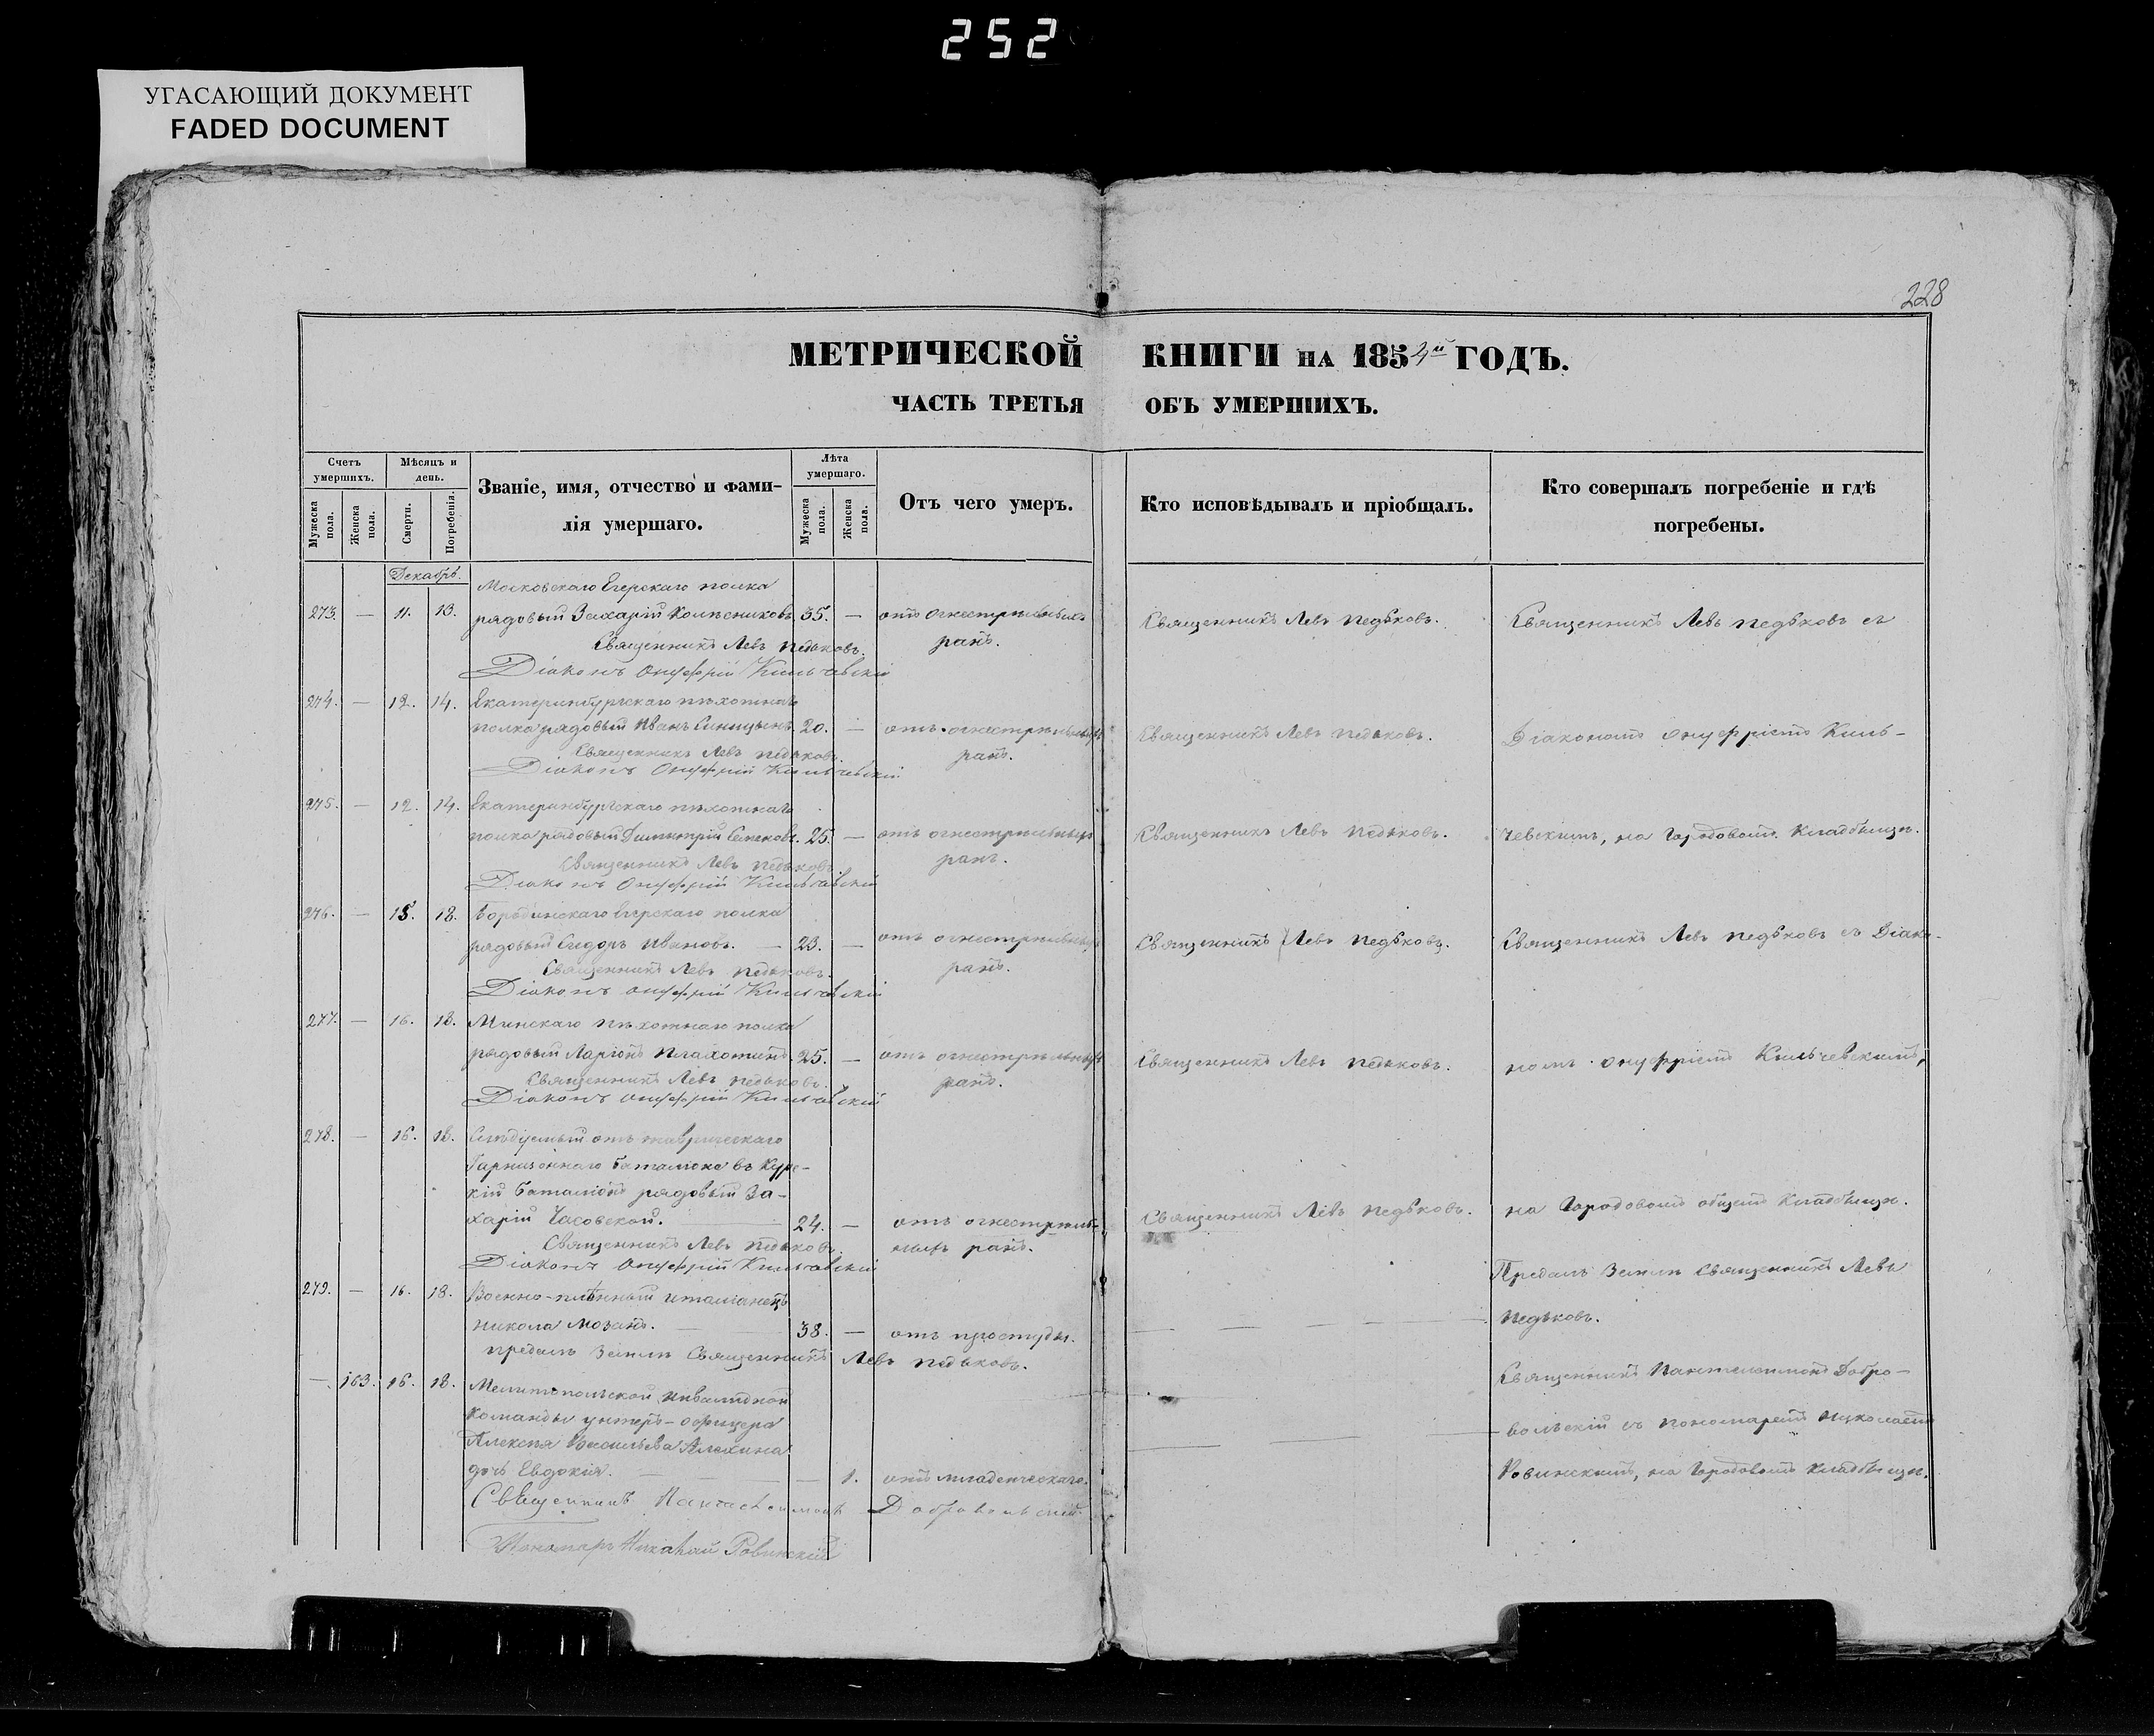 252
УГАСАЮЩИЙ ДОКУМЕНТ
FADED DOCUMENT
228
МЕТРИЧЕСКОЙ КНИГИ НА 1854й ГОДЪ.
ЧАСТЬ ТРЕТЬЯ ОБЪ УМЕРШИХЪ.
Счетъ умершихъ.
Мужеска пола.
Женска пола.
Мѣсяцъ и день.
Смерти.
Погребенія.
Званіе, имя, отчество и фамилія умершаго.
Лѣта умершаго.
Мужеска пола.
Женска пола.
Отъ чего умеръ.
Кто исповѣдывалъ и пріобщалъ.
Кто совершалъ погребеніе и гдѣ погребены.
Декабрь.
Московскаго Егерскаго полка
273. — 11. 13. рядовый Захарій Колѣсниковъ. 35. — отъ огнестрѣльныхъ Священникъ Левъ Педьковъ. Священникъ Левъ Педьковъ съ
Священникъ Левъ Педьковъ. ранъ.
Діаконъ Онуфрій Кильчевскій
274. — 12. 14. Екатеринбургскаго пѣхотнаго
полка рядовый Иванъ Синицынъ. 20. — отъ огнестрѣльныхъ Священникъ Левъ Педьковъ. Діакономъ Онуфріемъ Киль-
Священникъ Левъ Педьковъ. ранъ.
Діаконъ Онуфрій Кильчевскій
275. — 12. 14. Екатеринбургскаго пѣхотнаго
полка рядовый Димитрій 25. — отъ огнестрѣльныхъ Священникъ Левъ Педьковъ. чевскимъ, на Городовомъ Кладбищѣ.
Священникъ Левъ Педьковъ. ранъ.
Діаконъ Онуфрій Кильчевскій
276. — 15. 18. Бородинскаго Егерскаго полка
рядовый Сидоръ Ивановъ. — 23. — отъ огнестрѣльныхъ Священникъ Левъ Педьковъ. Священникъ Левъ Педьковъ съ Діако-
Священникъ Левъ Педьковъ. ранъ.
Діаконъ Онуфрій Кильчевскій
277. — 16. 18. Минскаго пѣхотнаго полка
рядовый Ларіонъ Плахотинъ. 25. — отъ огнестрѣльныхъ Священникъ Левъ Педьковъ. номъ Онуфріемъ Кильчевскимъ,
Священникъ Левъ Педьковъ. ранъ.
Діаконъ Онуфрій Кильчевскій
278. — 16. 18. Слѣдуемый отъ таврическаго
Гарнизоннаго баталіона въ Курс-
кій баталіонъ рядовый За-
харій Часовской. 24. — отъ огнестрѣль- Священникъ Левъ Педьковъ. на Городовомъ общемъ Кладбищѣ.
Священникъ Левъ Педьковъ. ныхъ ранъ.
Діаконъ Онуфрій Кильчевскій
279. — 16. 18. Военно-плѣнный италіанецъ Предалъ Землѣ Священникъ Левъ
Никола Мозанъ. 38. — отъ простуды. Педьковъ.
предалъ Землѣ Священникъ Левъ Педьковъ.
— 103. 16. 18. Мелитопольской инвалидной Священникъ Пантелеимонъ Добро-
Команды унтеръ-офицера вольскій съ пономаремъ Николаемъ
Алексѣя Васильева Алехина
дочь Евдокія. — 1. отъ младенческаго. Ровинскимъ, на Городовомъ Кладбищѣ.
Священникъ Пантелеимонъ Добровольскій
Пономарь Николай Ровинскій